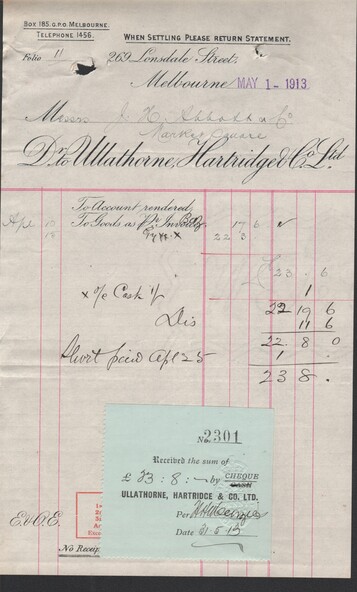 BOX 185. G.P.O. MELBOURNE.
TELEPHONE 1456.
WHEN SETTLING PLEASE RETURN STATEMENT.
Folio 11
269 Lonsdale Street,
Melbourne MAY 1 - 1913
Messrs J. H. Abbott & Co
Market Square
Dr. to Ullathorne, Hartridge & Co. Ltd.
To Account rendered,
To Goods as Pr. Invoice
17 6
22 3
£ 23 . 6
1
x o/c Cash 1/
22 19 6
Dis 11 6
22 8 0
Short paid Apl 25 1
23 8 .
No. 2301
Received the sum of
£ 23 : 8 : - by CHEQUE
ULLATHORNE, HARTRIDGE & CO. LTD.
Per
Date 21.5.13
E. & O. E.
No Receip